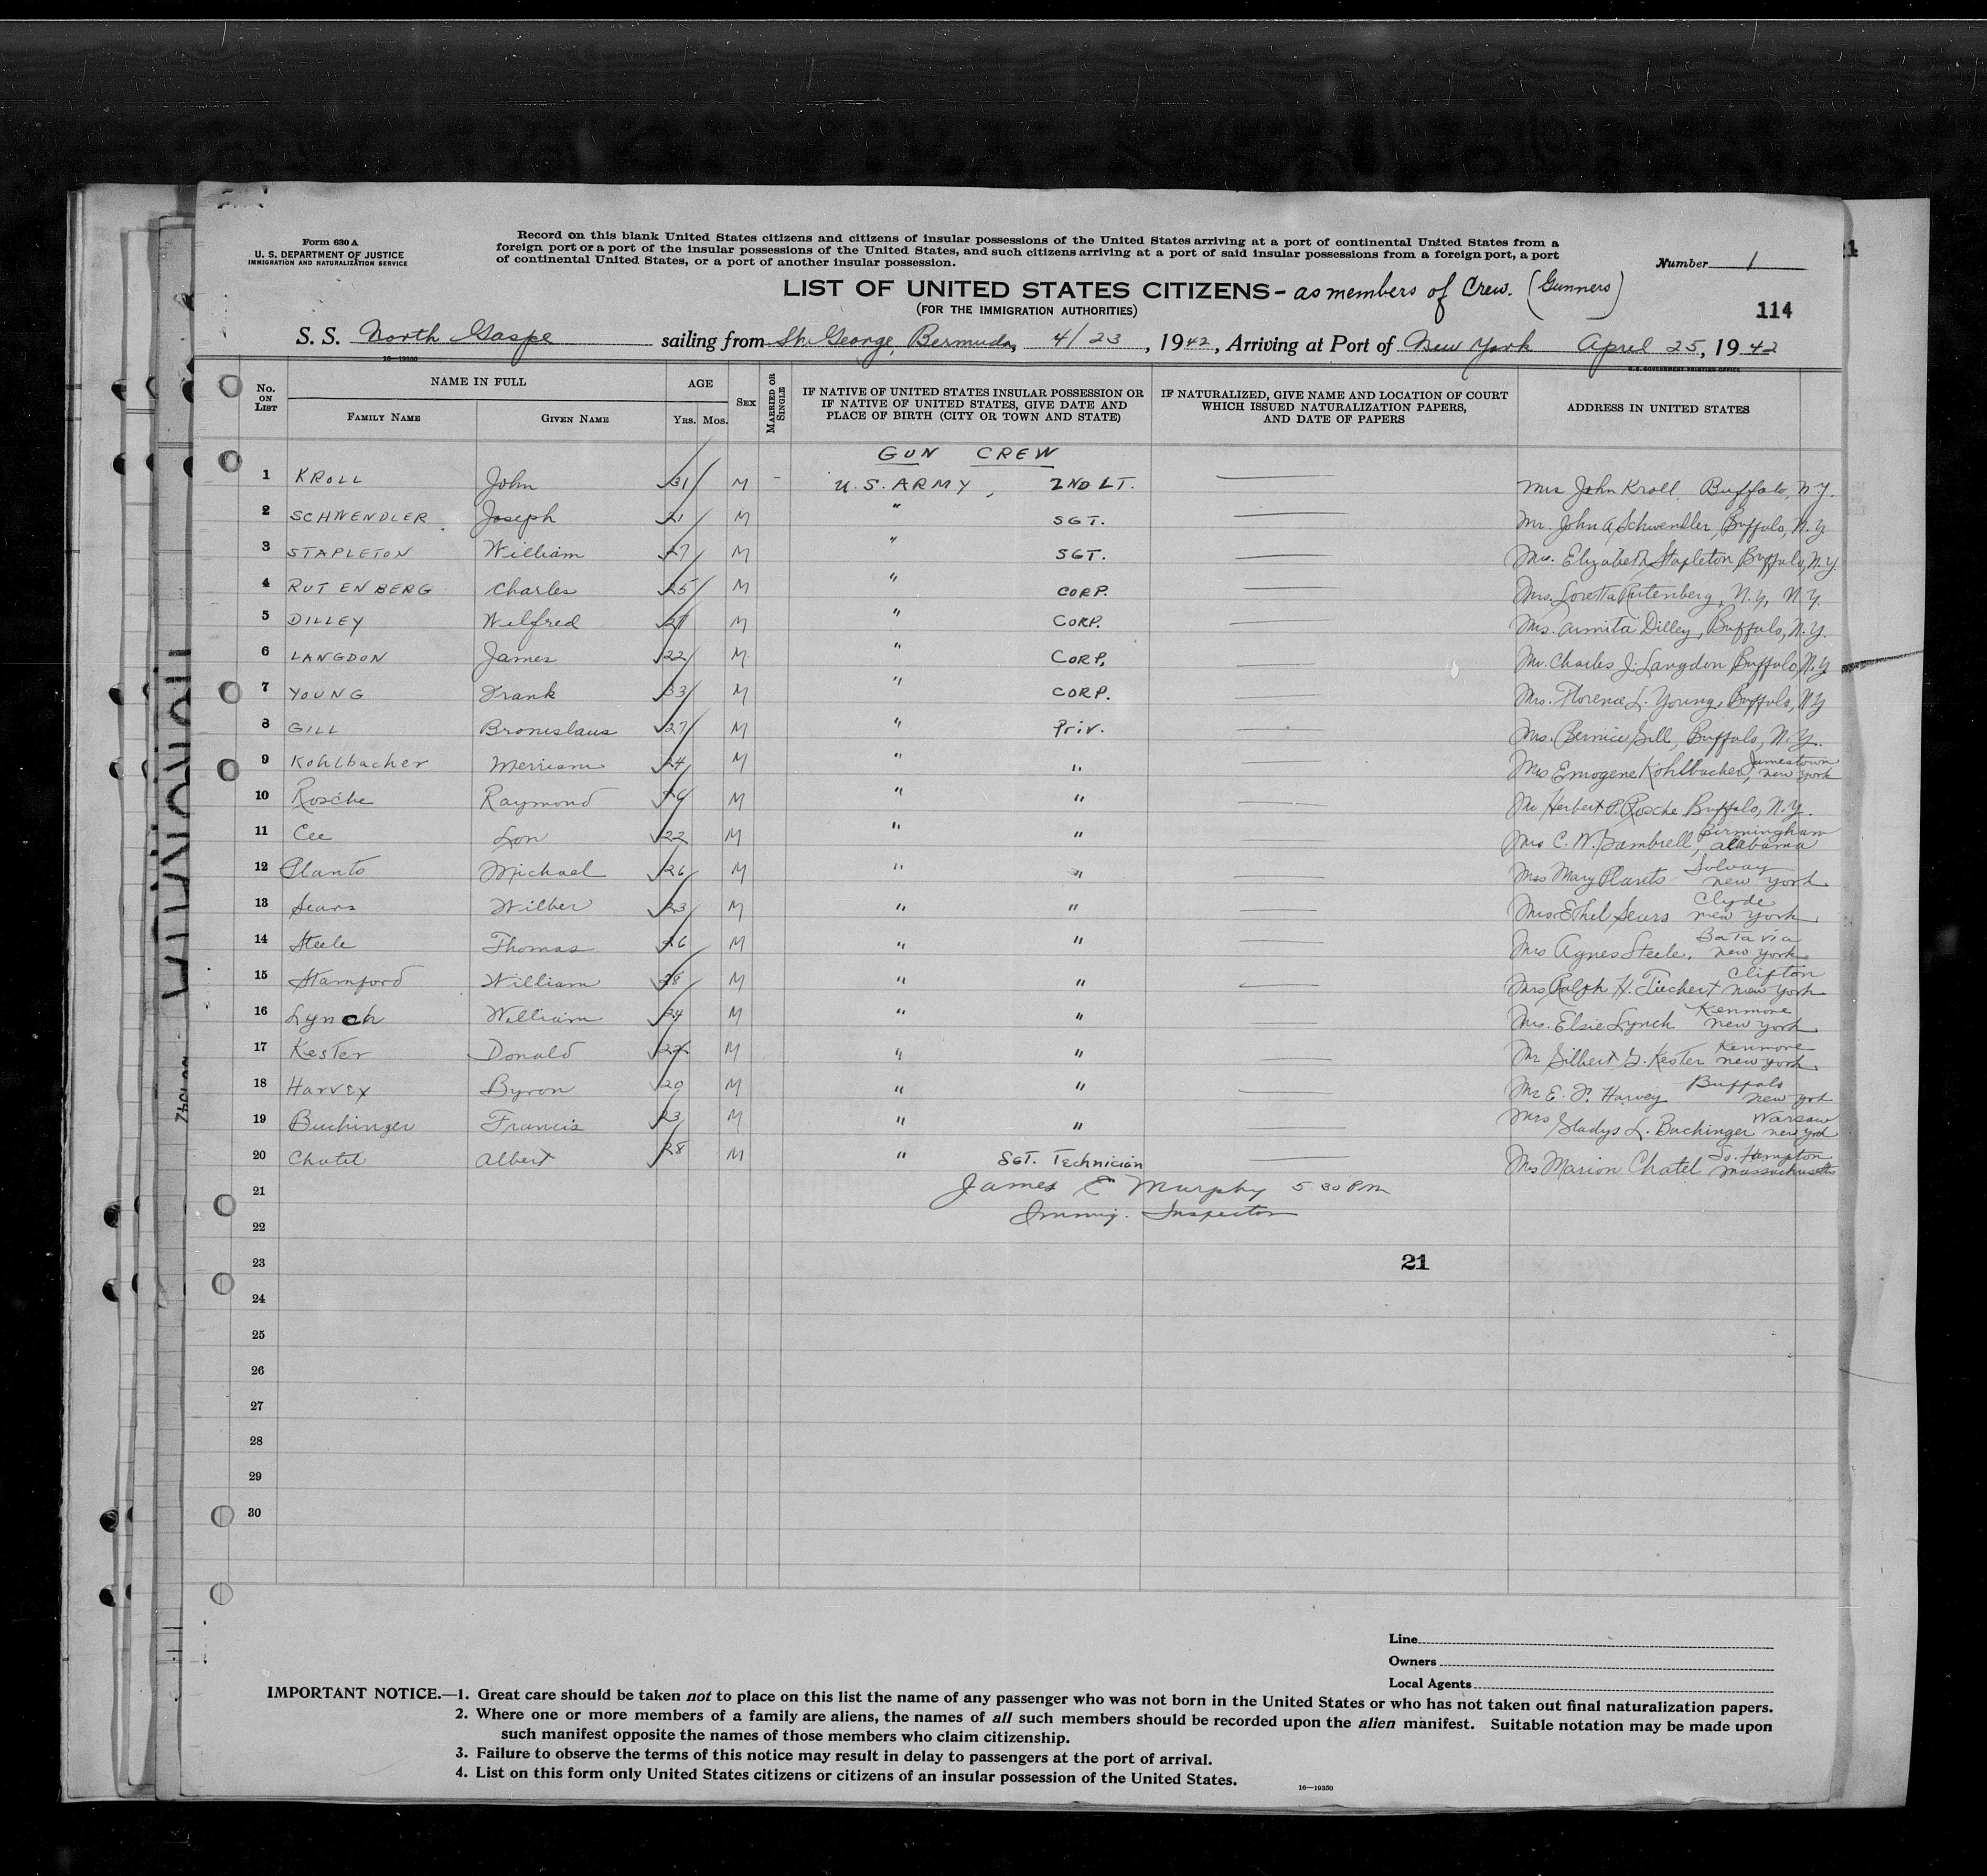 Form 630 A
U. S. DEPARTMENT OF JUSTICE
IMMIGRATION AND NATURALIZATION SERVICE
Record on this blank United States citizens and citizens of insular possessions of the United States arriving at a port of continental United States from a
foreign port or a port of the insular possessions of the United States, and such citizens arriving at a port of said insular possessions from a foreign port, a port
of continental United States, or a port of another insular possession.
Number 1
LIST OF UNITED STATES CITIZENS - as members of Crew. (Gunners)
(FOR THE IMMIGRATION AUTHORITIES)
114
S. S. North Gaspe sailing from St. George, Bermuda, 4/23, 1942, Arriving at Port of New York April 25, 1942
16—19350
U. S. GOVERNMENT PRINTING OFFICE
No. ON LIST
NAME IN FULL
FAMILY NAME
GIVEN NAME
AGE
YRS. MOS.
SEX
MARRIED OR SINGLE
IF NATIVE OF UNITED STATES INSULAR POSSESSION OR
IF NATIVE OF UNITED STATES, GIVE DATE AND
PLACE OF BIRTH (CITY OR TOWN AND STATE)
IF NATURALIZED, GIVE NAME AND LOCATION OF COURT
WHICH ISSUED NATURALIZATION PAPERS,
AND DATE OF PAPERS
ADDRESS IN UNITED STATES
GUN CREW
1 KROLL John 31 M - U.S. ARMY, 2ND LT. Mrs John Kroll, Buffalo, N.Y.
2 SCHWENDLER Joseph 21 M " SGT. Mr. John A Schwendler, Buffalo, N.Y
3 STAPLETON William 27 M " SGT. Mrs. Elizabeth Stapleton Buffalo, N.Y.
4 RUTENBERG Charles 25 M " CORP. Mrs. Loretta Rutenberg, N.Y, N.Y.
5 DILLEY Wilfred 21 M " CORP. Mrs. Dilley, Buffalo, N.Y.
6 LANGDON James 22 M " CORP. Mr. Charles J. Langdon Buffalo, N.Y
7 YOUNG Frank 33 M " CORP. Mrs. Florence L. Young, Buffalo, N.Y
8 GILL Bronislaus 27 M " Priv. Mrs. Bernice Gill, Buffalo, N.Y.
9 Kohlbacher Merriam 24 M " " Mrs Emogene Kohlbacher, Jamestown New York
10 Rosche Raymond M " " Mr Herbert P. Rosche Buffalo, N.Y.
11 Cee Lon 22 M " " Mrs C. W. Gambrell, Birmingham Alabama
12 Plants Michael 26 M " " Mrs Mary Plants Solvay New York
13 Sears Wilber 23 M " " Mrs Ethel Sears Clyde New York
14 Steele Thomas 26 M " " Mrs Agnes Steele, Batavia New York
15 Stamford William 28 M " " Mrs Ralph H. Tiechert Clifton New York
16 Lynch William 24 M " " Mrs. Elsie Lynch Kenmore New York
17 Kester Donald 22 M " " Mr Gilbert G. Kester Kenmore New York
18 Harvey Byron 20 M " " Mr E. P. Harvey Buffalo New York
19 Buchinger Francis 23 M " " Mrs Gladys L. Buchinger Warsaw New York
20 Chatel Albert 28 M " SGT. Technician Mrs Marion Chatel So. Hampton Massachusetts
21 James E Murphy 5 30 PM
22 Immig. Inspector
23
21
24
25
26
27
28
29
30
Line
Owners
Local Agents
IMPORTANT NOTICE.—1. Great care should be taken not to place on this list the name of any passenger who was not born in the United States or who has not taken out final naturalization papers.
2. Where one or more members of a family are aliens, the names of all such members should be recorded upon the alien manifest. Suitable notation may be made upon
such manifest opposite the names of those members who claim citizenship.
3. Failure to observe the terms of this notice may result in delay to passengers at the port of arrival.
4. List on this form only United States citizens or citizens of an insular possession of the United States.
16—19350